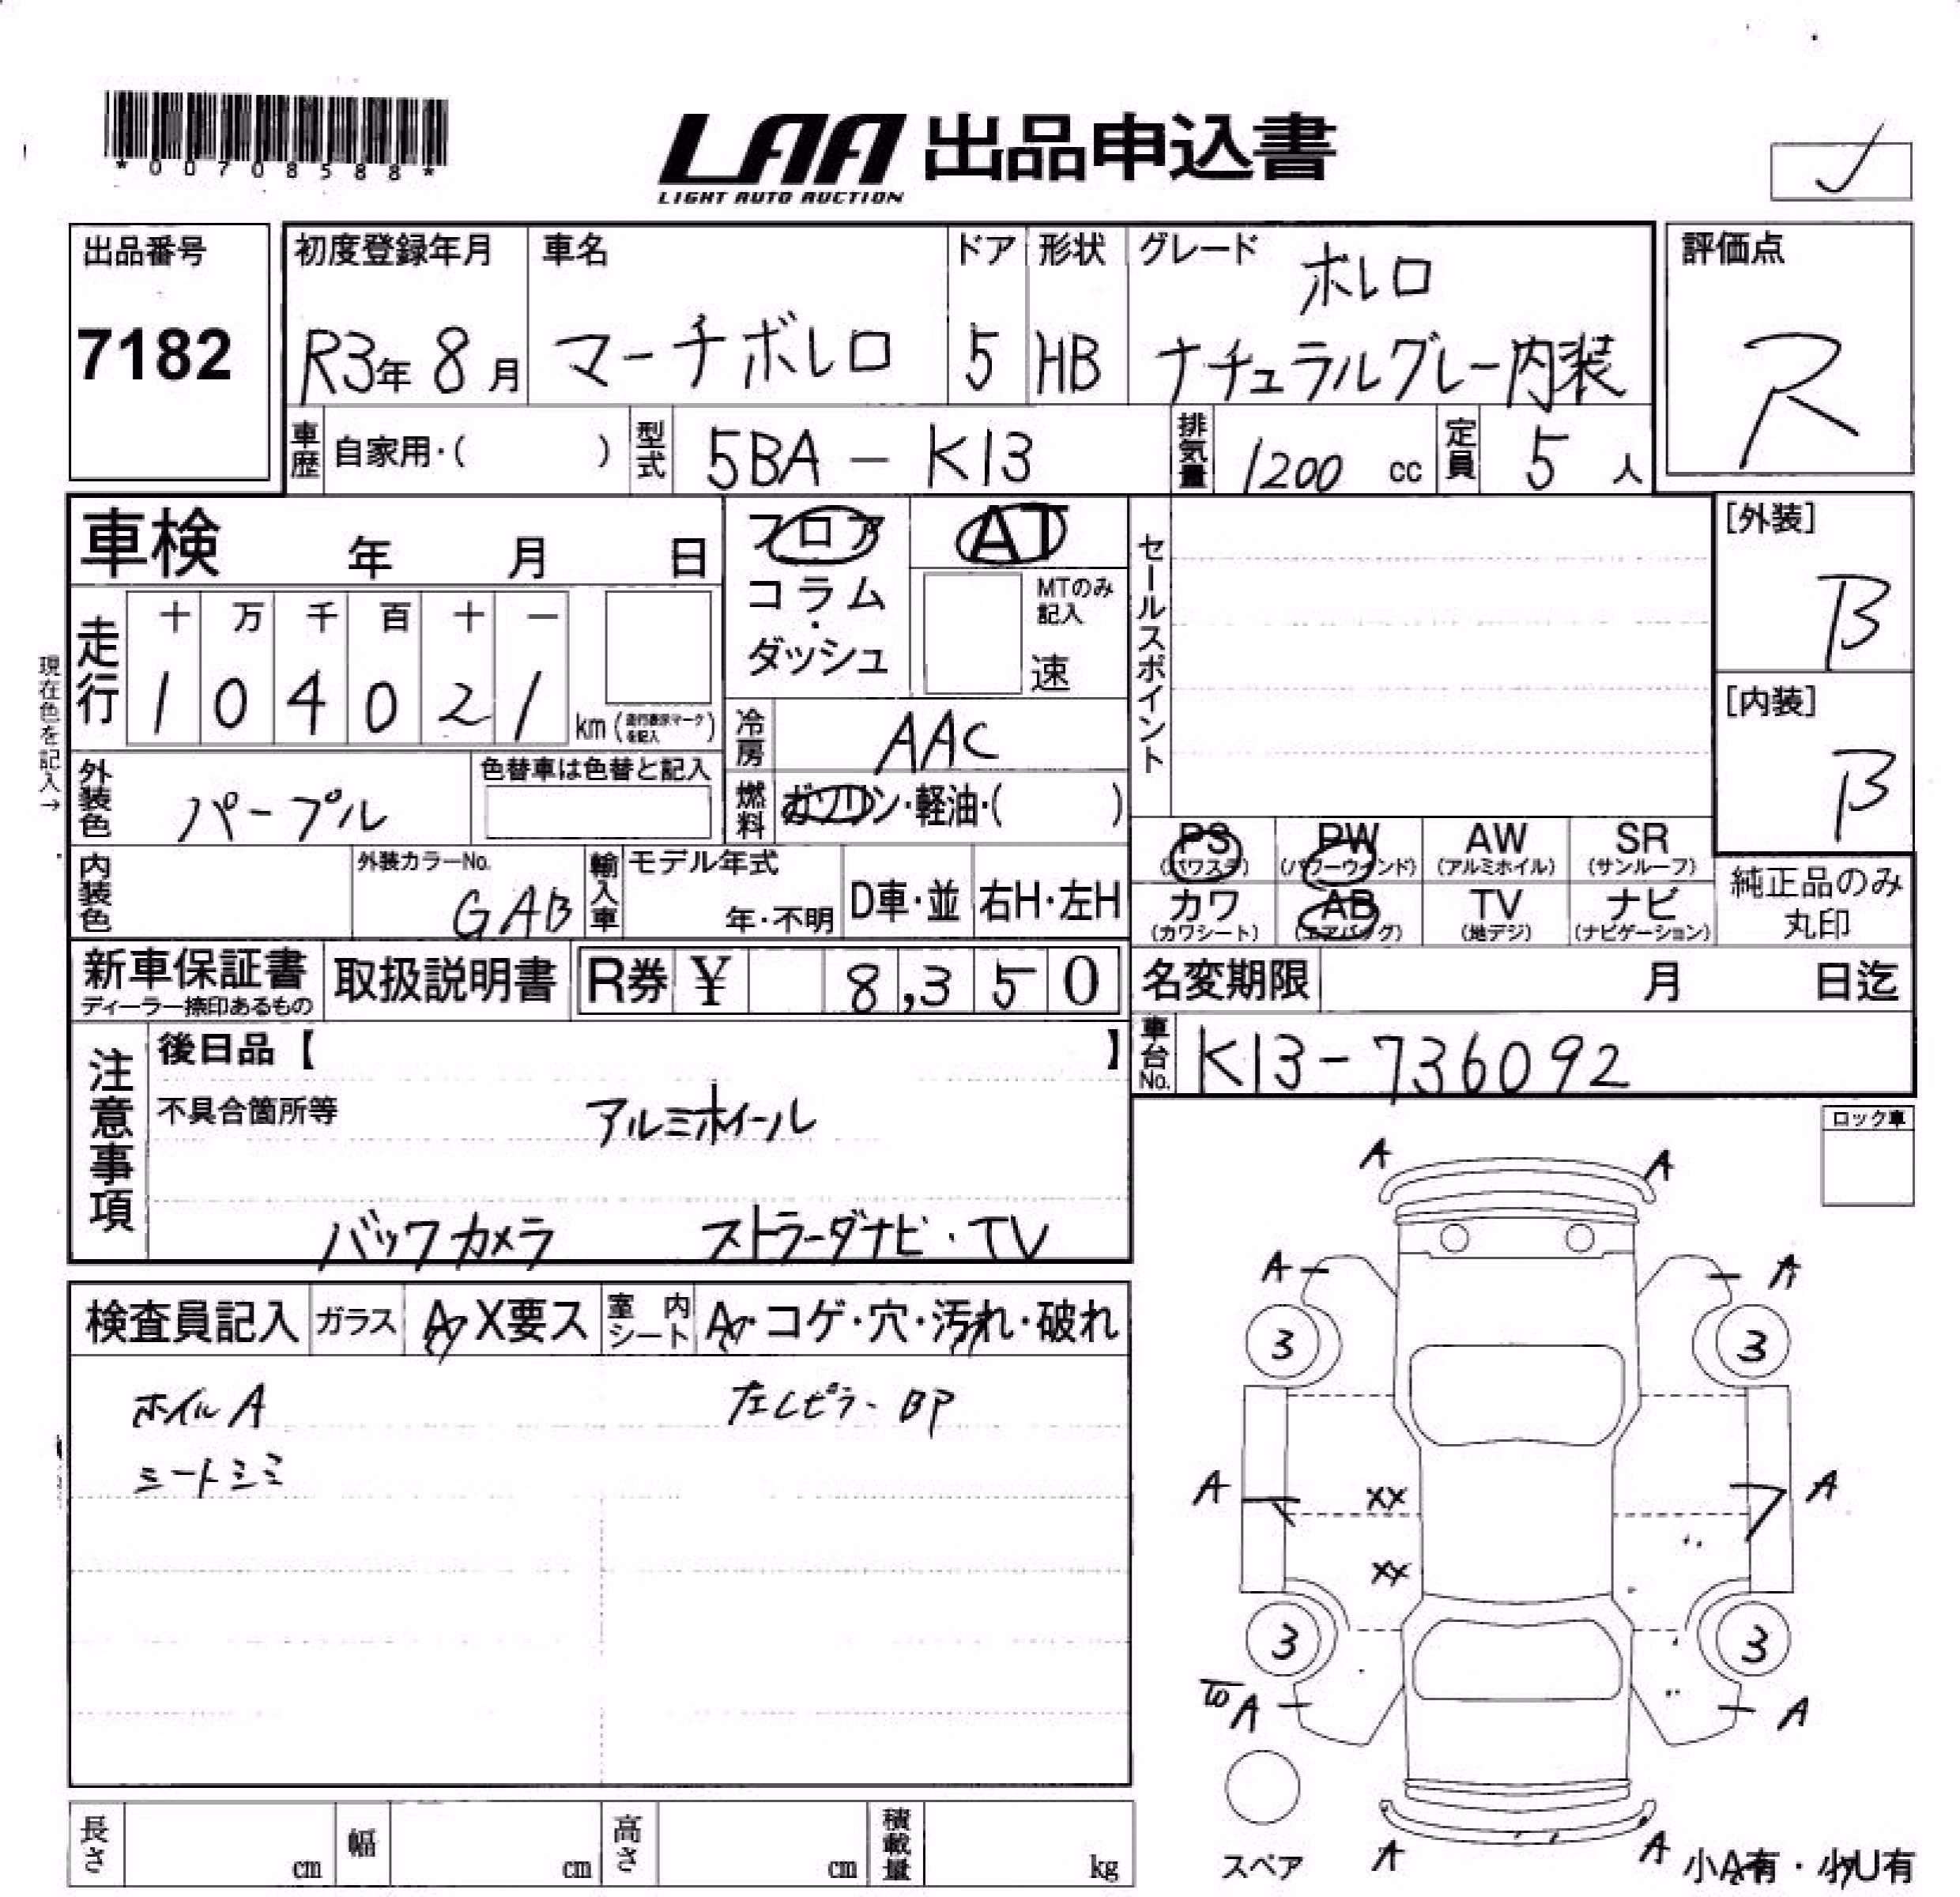 *00708588*
LAA 出品申込書
LIGHT AUTO AUCTION
出品番号
7182
初度登録年月
R3年8月
車名
マーチボレロ
ドア
5
形状
HB
グレード
ボレロ
ナチュラルグレー内装
評価点
R
車歴 自家用・( )
型式 5BA - K13
排気量 1200 cc
定員 5 人
車検 年 月 日
フロア
コラム
・
ダッシュ
AT
MTのみ
記入
速
セールスポイント
[外装]
B
[内装]
B
現在色を記入→
走行
十 万 千 百 十 一
1 0 4 0 2 1
km (走行表示マークを記入)
冷房 AAC
燃料 ガソリン・軽油・( )
外装色 パープル
色替車は色替と記入
内装色
外装カラーNo.
GAB
輸入車
モデル年式
年・不明
D車・並
右H・左H
PS
(パワステ)
PW
(パワーウィンド)
AW
(アルミホイル)
SR
(サンルーフ)
カワ
(カワシート)
AB
(エアバック)
TV
(地デジ)
ナビ
(ナビゲーション)
純正品のみ
丸印
新車保証書
ディーラー捺印あるもの
取扱説明書
R券 ¥ 8,350
名変期限 月 日迄
車台No. K13-736092
注意事項
後日品【 】
不具合箇所等
アルミホイール
バックカメラ ストラーダナビ・TV
ロック車
検査員記入
ガラス
A X要ス
室内シート
A・コゲ・穴・汚れ・破れ
ホイルA
左Cピラ- BP
シートシミ
A A
A A
3 3
A XX A
XX
3 3
A A
スペア
A A
小A有・小U有
長さ cm
幅 cm
高さ cm
積載量 kg